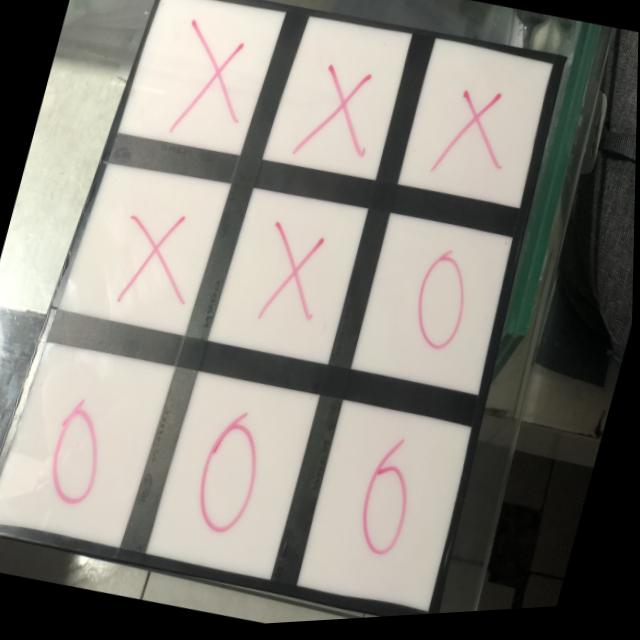 X X X
X X O
O O O